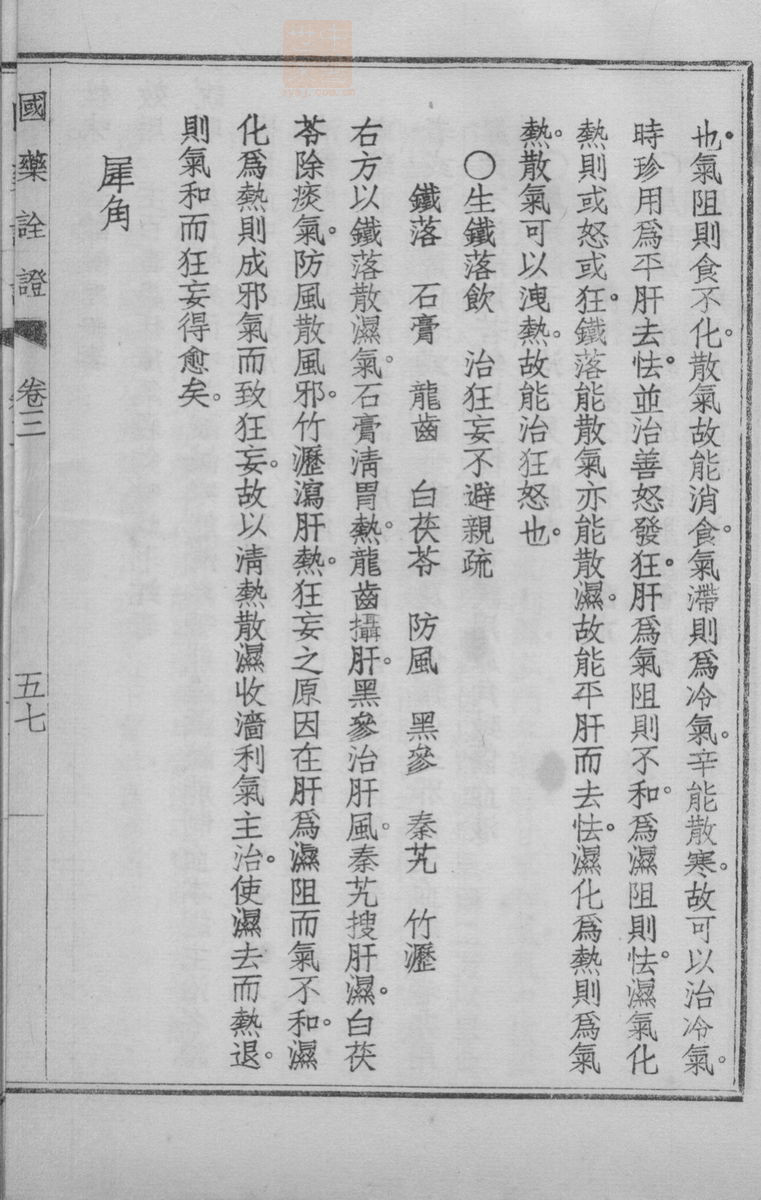 也。氣阻則食不化。散氣故能消食。氣滯則爲冷氣。辛能散寒。故可以治冷氣。
時珍用爲平肝去怯。並治善怒發狂。肝爲氣阻則不和。爲濕阻則怯。濕氣化
熱則或怒或狂。鐵落能散氣亦能散濕。故能平肝而去怯。濕化爲熱則爲氣
熱。散氣可以洩熱。故能治狂怒也。
〇生鐵落飲　治狂妄不避親疏
鐵落　石膏　龍齒　白茯苓　防風　黑參　秦艽　竹瀝
右方以鐵落散濕氣。石膏清胃熱。龍齒攝肝。黑參治肝風。秦艽搜肝濕。白茯
苓除痰氣。防風散風邪。竹瀝瀉肝熱。狂妄之原因在肝爲濕阻而氣不和。濕
化爲熱則成邪氣而致狂妄。故以清熱散濕收濇利氣主治。使濕去而熱退。
則氣和而狂妄得愈矣。
犀角
國藥詮證　卷三　五七